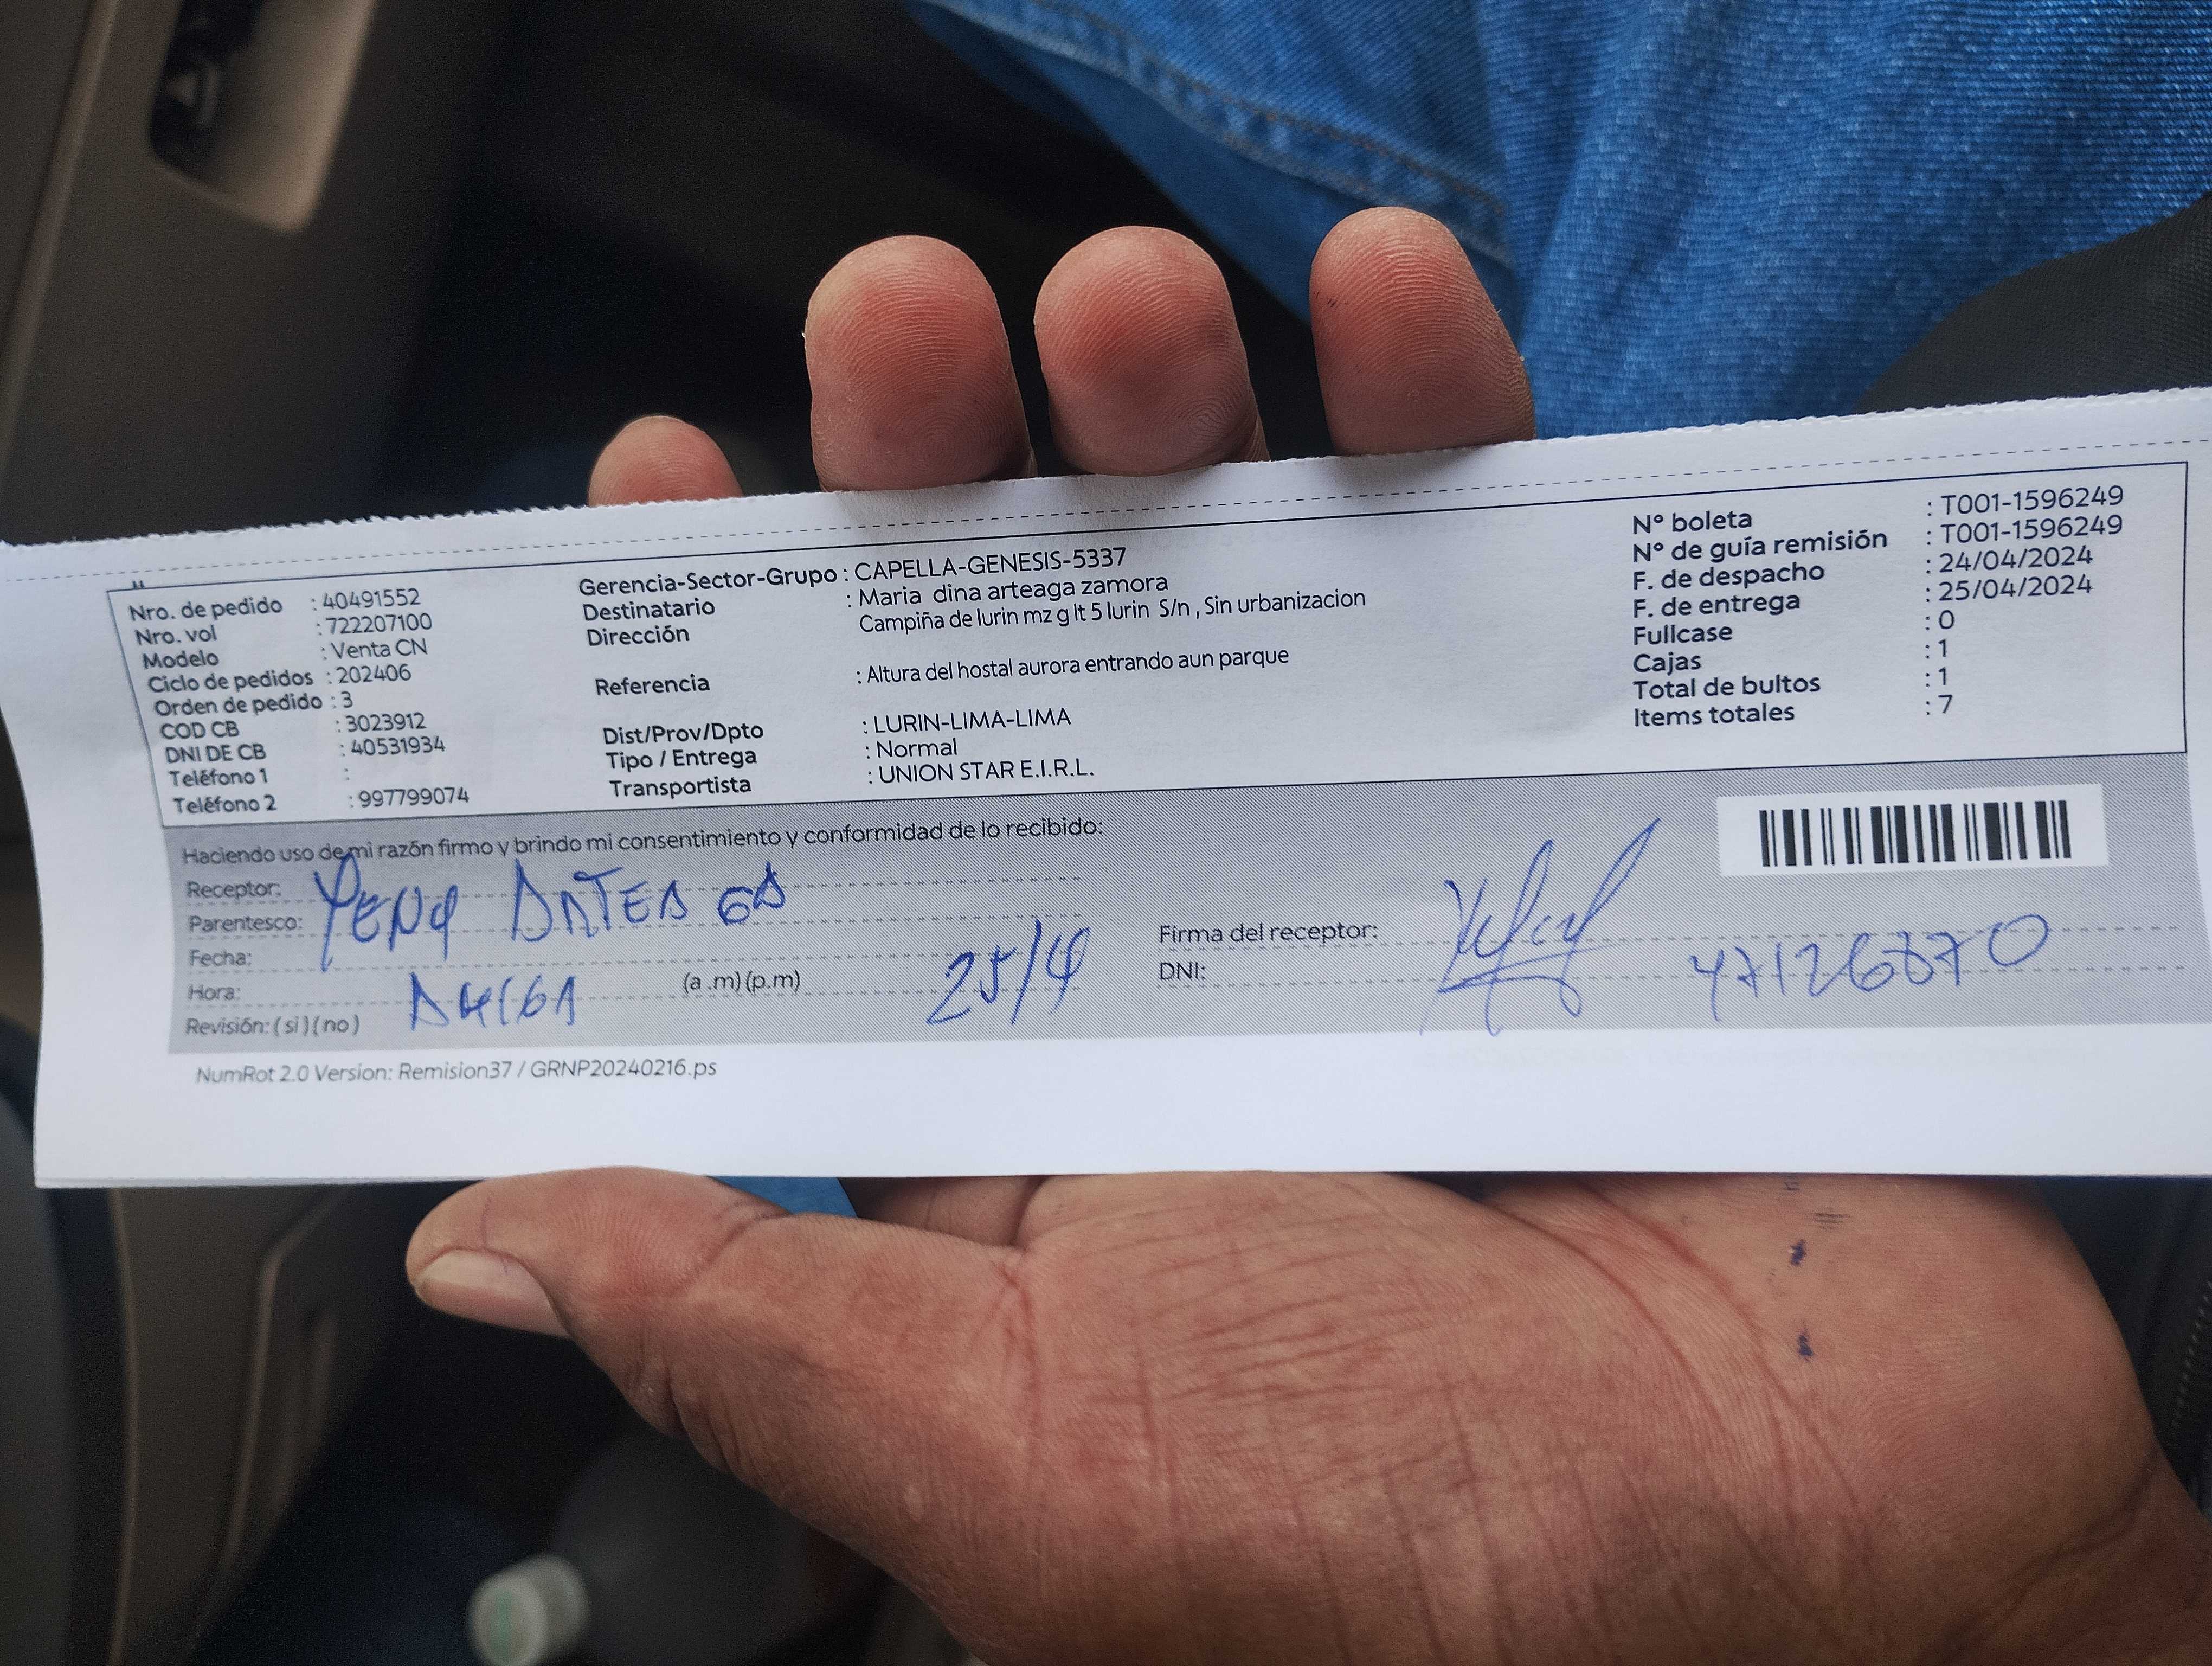 Nro. de pedido : 40491552
Nro. vol : 722207100
Modelo : Venta CN
Ciclo de pedidos : 202406
Orden de pedido : 3
COD CB : 3023912
DNI DE CB : 40531934
Teléfono 1 :
Teléfono 2 : 997799074
Gerencia-Sector-Grupo : CAPELLA-GENESIS-5337
Destinatario : Maria dina arteaga zamora
Dirección Campiña de lurin mz g lt 5 lurin S/n , Sin urbanizacion
Referencia : Altura del hostal aurora entrando aun parque
Dist/Prov/Dpto : LURIN-LIMA-LIMA
Tipo / Entrega : Normal
Transportista : UNION STAR E.I.R.L.
N° boleta : T001-1596249
N° de guía remisión : T001-1596249
F. de despacho : 24/04/2024
F. de entrega : 25/04/2024
Fullcase : 0
Cajas : 1
Total de bultos : 1
Items totales : 7
Haciendo uso de mi razón firmo y brindo mi consentimiento y conformidad de lo recibido:
Receptor:
Parentesco:
Fecha: 25/4
Hora: (a .m) (p.m)
Revisión: ( si ) ( no )
Firma del receptor:
DNI:
NumRot 2.0 Version: Remision37 / GRNP20240216.ps